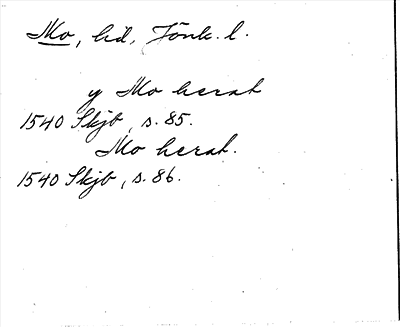 Mo, hd, Jönk. l.
y Mo herat
1540 Skjb, s. 85.
Mo herat.
1540 Skjb, s. 86.